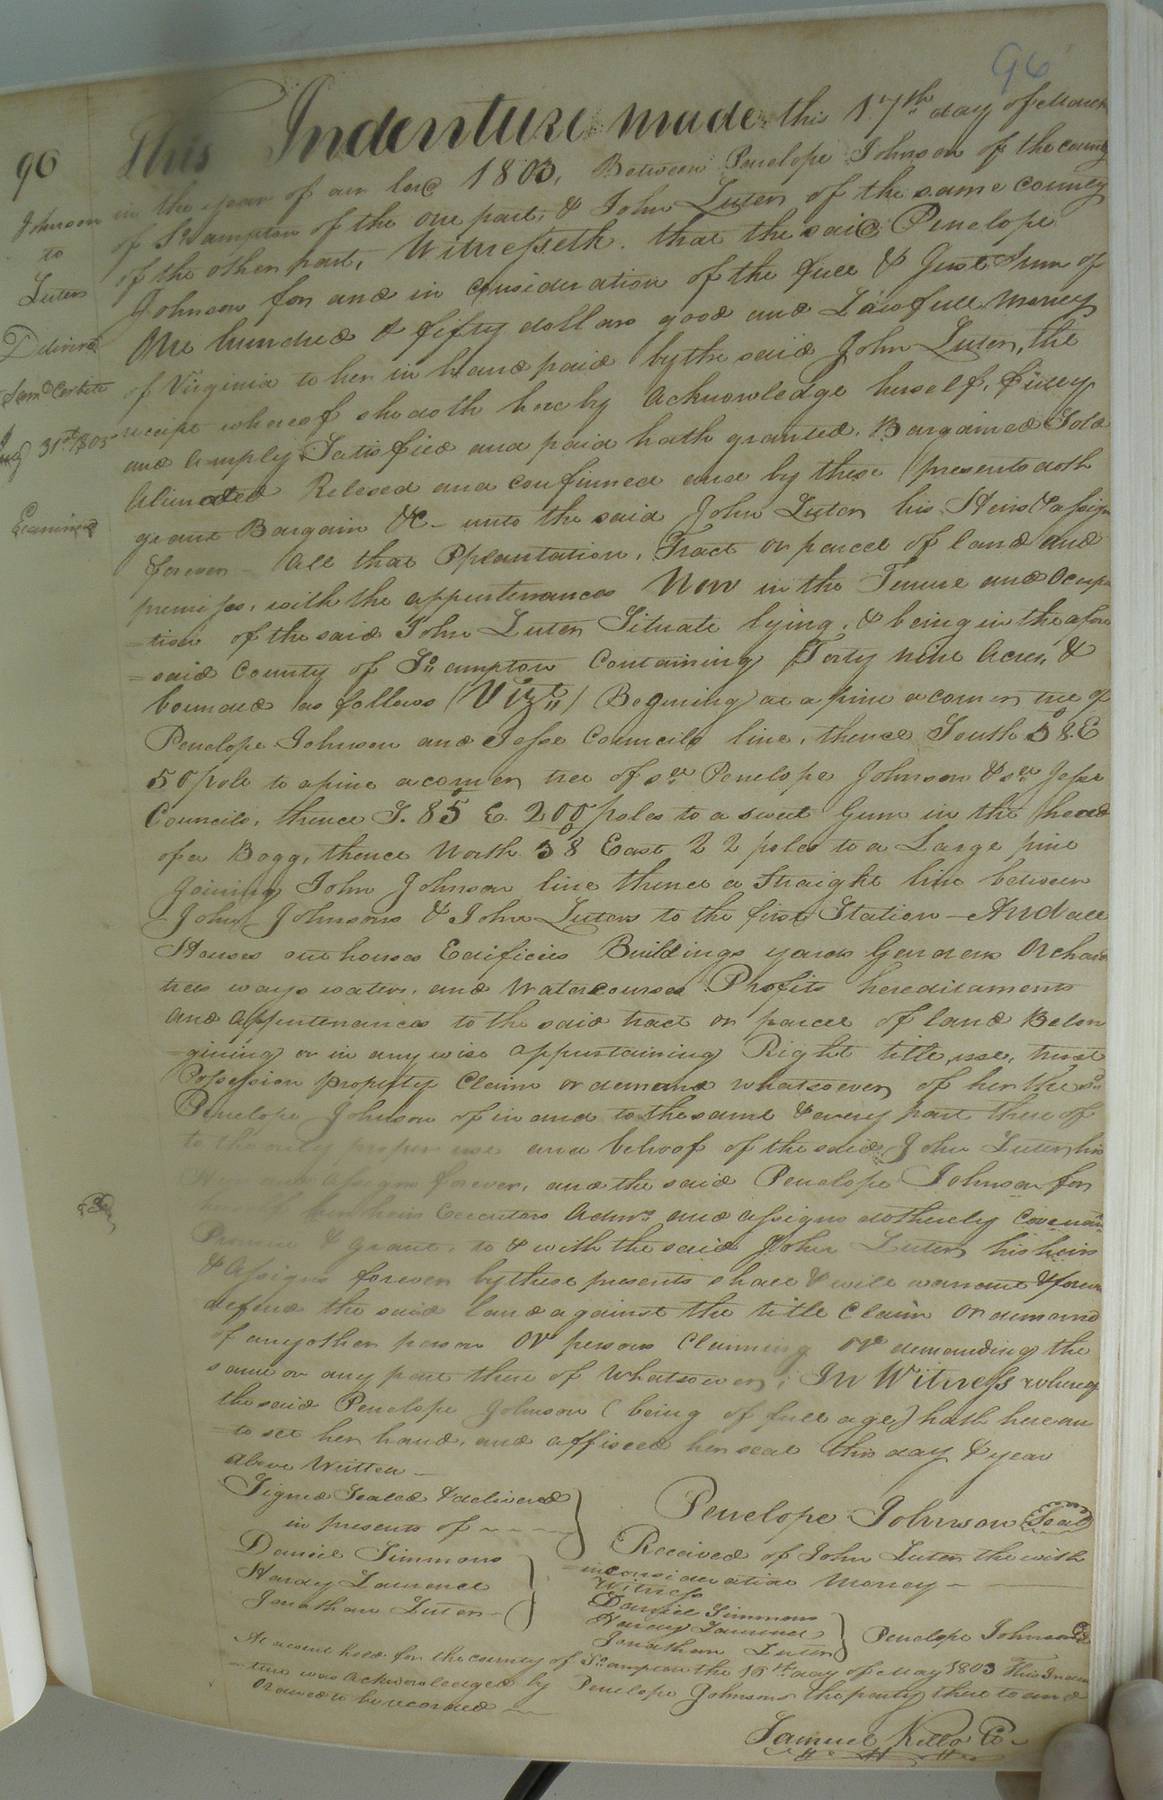 96
96
Johnson
to
Luten
Deliverd
Saml Corbitt
Augt 31st 1803
Examined
This Indenture made this 17th day of March
in the year of our lord 1803, Between Penelope Johnson of the county
of So.ampton of the one part, & John Luten of the same county
of the other part, Witnesseth. that the said Penelope
Johnson for and in consideration of the full & Just Sum of
One hundred & fifty dollars good and Lawfull money
of Virginia to her in hand paid by the said John Luten, the
receipt whereof she doth hereby Acknowledge herself, fully
and Amply Satisfied and paid hath granted, Bargained Sold
Alienated Relesed and confirmed and by these presents doth
grant Bargain &C- unto the said John Luten his Heirs & assigns
forever - All that Plantation, Tract or parcel of land and
premises, with the appurtenances Now in the Tenure and Ocupa
=tion of the said John Luten Situate lying, & being in the afore
=said County of So.ampton Containing Forty nine Acres, &
bounded as follows (Vizt,,) Begining at a pine a corner tree of
Penelope Johnson and Jesse Councils line, thence South 58°. E
50 pole to a pine a corner tree of sd. Penelope Johnson & sd. Jesse
Councils, thence S. 85° E. 200 poles to a sweet Gum in the head
of a Bogg, thence North 38° East 22 poles to a Large pine
Joining John Johnson line thence a Straight line between
John Johnsons & John Lutens to the first Station - And all
Houses out houses Edificies Buildings yards Gardens Orchard
trees ways waters, and Watercourses Profits hereditaments
and Appurtenances to the said tract or parcel of land Belon
=gining or in any wise appurtaining Right title, use, trust
Possession property Claim or demand whatsoever of her the sd.
Penelope Johnson of in and to the same & every part there of
to the only proper use and behoof of the said John Luten his
Heirs and Assigns forever, and the said Penelope Johnson for
herself her heirs Executors Admrs and assigns doth hereby Covenan
Promise & grant, to & with the said John Luten his heirs
& Assigns forever by these presents shall & will warrant & forever
defend the said land against the title Claim Or demand
of any other person Or persons Claiming Or demanding the
same or any part there of Whatsoever; In Witness whereof
the said Penelope Johnson (being of full age) hath hereun
=to set her hand, and affixed her seal this day & year
above Written -
Signed Sealed & delivered
in presents of - - - -
Daniel Simmons
Hardy Laurence
Jonathan Luten -
Penelope Johnson Seal
Received of John Luten the with
=in consideration Money -
Witness
Daniel Simmons
Hardy Laurence
Jonathan Luten
Penelope Johnson
At a court held for the county of So.ampton the 16th day of May 1803 This Inden
=ture was Acknowledged by Penelope Johnson the party there to and
Ordered to be recorded -
Samuel Kello Ck